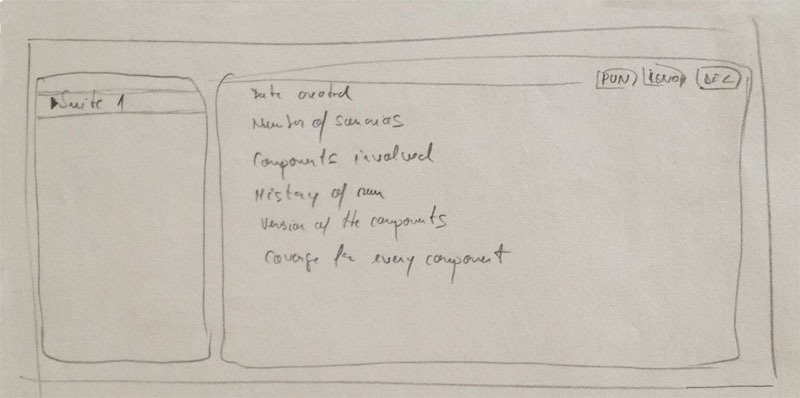 RUN DEL
▶Suite 1
Date created
Number of scenarios
Components involved
History of run
Version of the components
Coverge for every component